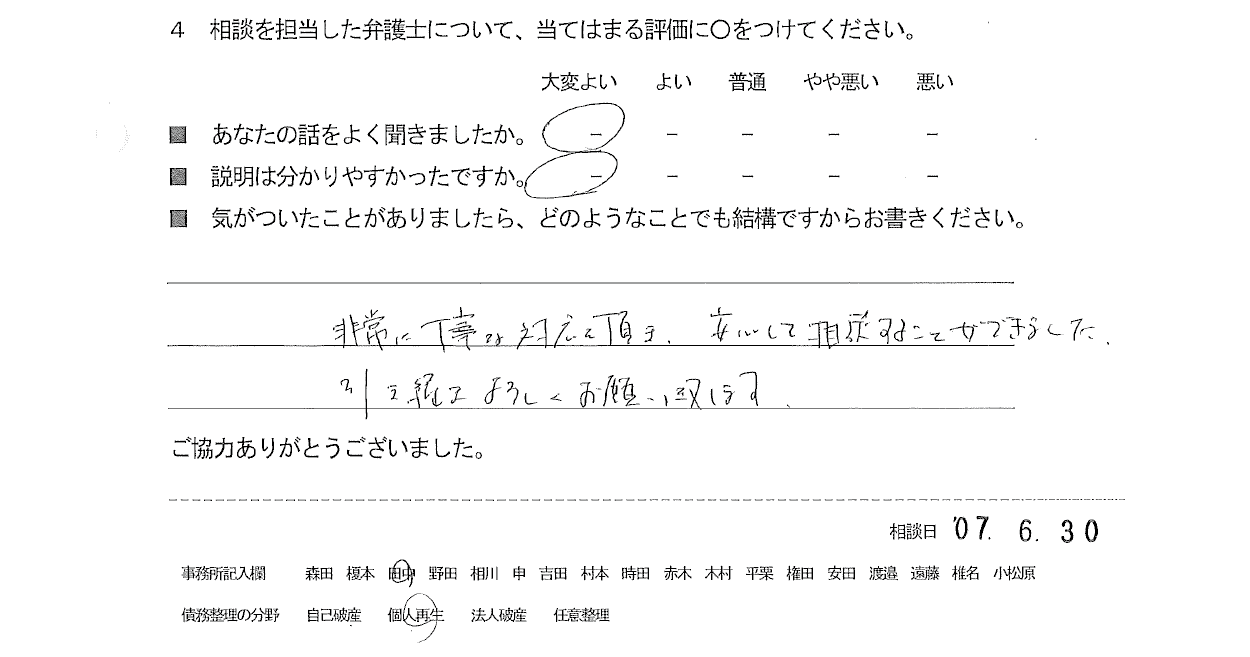 4 相談を担当した弁護士について、当てはまる評価に○をつけてください。
大変よい よい 普通 やや悪い 悪い
■ あなたの話をよく聞きましたか。 － － － － －
■ 説明は分かりやすかったですか。 － － － － －
■ 気がついたことがありましたら、どのようなことでも結構ですからお書きください。
非常に丁寧な対応を頂き、安心して相談することができました。
引き続きよろしくお願い致します。
ご協力ありがとうございました。
相談日 '07. 6. 30
事務所記入欄 森田 榎本 田中 野田 相川 申 吉田 村本 時田 赤木 木村 平栗 権田 安田 渡邉 遠藤 椎名 小松原
債務整理の分野 自己破産 個人再生 法人破産 任意整理